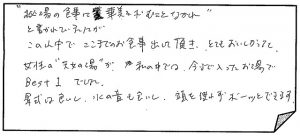 "山の湯の食事に豪華美をおもとむなかれ"
と書かれていましたが
この山中で ここまでのお食事出して頂き、とてもおいしかったです。
女性の"天女の湯"が 私の中では、今まで入ったお湯で
Best 1 でした。
景色も良いし、水の音も良いし、頭を使わずボーっとできます